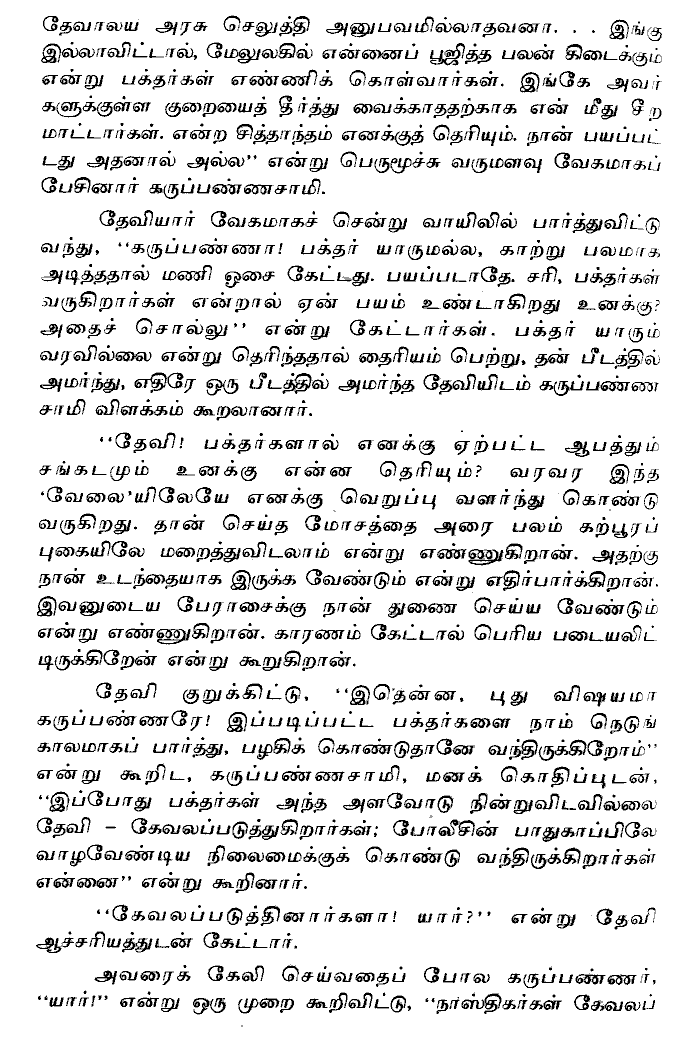 தேவாலய அரசு செலுத்தி அனுபவமில்லாதவனா. . . இங்கு
இல்லாவிட்டால், மேலுலகில் என்னைப் பூஜித்த பலன் கிடைக்கும்
என்று பக்தர்கள் எண்ணிக் கொள்வார்கள். இங்கே அவர்
களுக்குள்ள குறையைத் தீர்த்து வைக்காததற்காக என் மீது சீற
மாட்டார்கள். என்ற சித்தாந்தம் எனக்குத் தெரியும். நான் பயப்பட்
டது அதனால் அல்ல’’ என்று பெருமூச்சு வருமளவு வேகமாகப்
பேசினார் கருப்பண்ணசாமி.
தேவியார் வேகமாகச் சென்று வாயிலில் பார்த்துவிட்டு
வந்து, ‘‘கருப்பண்ணா! பக்தர் யாருமல்ல, காற்று பலமாக
அடித்ததால் மணி ஓசை கேட்டது. பயப்படாதே. சரி, பக்தர்கள்
வருகிறார்கள் என்றால் ஏன் பயம் உண்டாகிறது உனக்கு?
அதைச் சொல்லு’’ என்று கேட்டார்கள். பக்தர் யாரும்
வரவில்லை என்று தெரிந்ததால் தைரியம் பெற்று, தன் பீடத்தில்
அமர்ந்து, எதிரே ஒரு பீடத்தில் அமர்ந்த தேவியிடம் கருப்பண்ண
சாமி விளக்கம் கூறலானார்.
‘‘தேவி! பக்தர்களால் எனக்கு ஏற்பட்ட ஆபத்தும்
சங்கடமும் உனக்கு என்ன தெரியும்? வரவர இந்த
‘வேலை’யிலேயே எனக்கு வெறுப்பு வளர்ந்து கொண்டு
வருகிறது. தான் செய்த மோசத்தை அரை பலம் கற்பூரப்
புகையிலே மறைத்துவிடலாம் என்று எண்ணுகிறான். அதற்கு
நான் உடந்தையாக இருக்க வேண்டும் என்று எதிர்பார்க்கிறான்.
இவனுடைய பேராசைக்கு நான் துணை செய்ய வேண்டும்
என்று எண்ணுகிறான். காரணம் கேட்டால் பெரிய படையலிட்
டிருக்கிறேன் என்று கூறுகிறான்.
தேவி குறுக்கிட்டு, ‘‘இதென்ன, புது விஷயமா
கருப்பண்ணரே! இப்படிப்பட்ட பக்தர்களை நாம் நெடுங்
காலமாகப் பார்த்து, பழகிக் கொண்டுதானே வந்திருக்கிறோம்’’
என்று கூறிட, கருப்பண்ணசாமி, மனக் கொதிப்புடன்,
‘‘இப்போது பக்தர்கள் அந்த அளவோடு நின்றுவிடவில்லை
தேவி – கேவலப்படுத்துகிறார்கள்; போலீசின் பாதுகாப்பிலே
வாழவேண்டிய நிலைமைக்குக் கொண்டு வந்திருக்கிறார்கள்
என்னை’’ என்று கூறினார்.
‘‘கேவலப்படுத்தினார்களா! யார்?’’ என்று தேவி
ஆச்சரியத்துடன் கேட்டார்.
அவரைக் கேலி செய்வதைப் போல கருப்பண்ணர்,
‘‘யார்!’’ என்று ஒரு முறை கூறிவிட்டு, ‘‘நாஸ்திகர்கள் கேவலப்